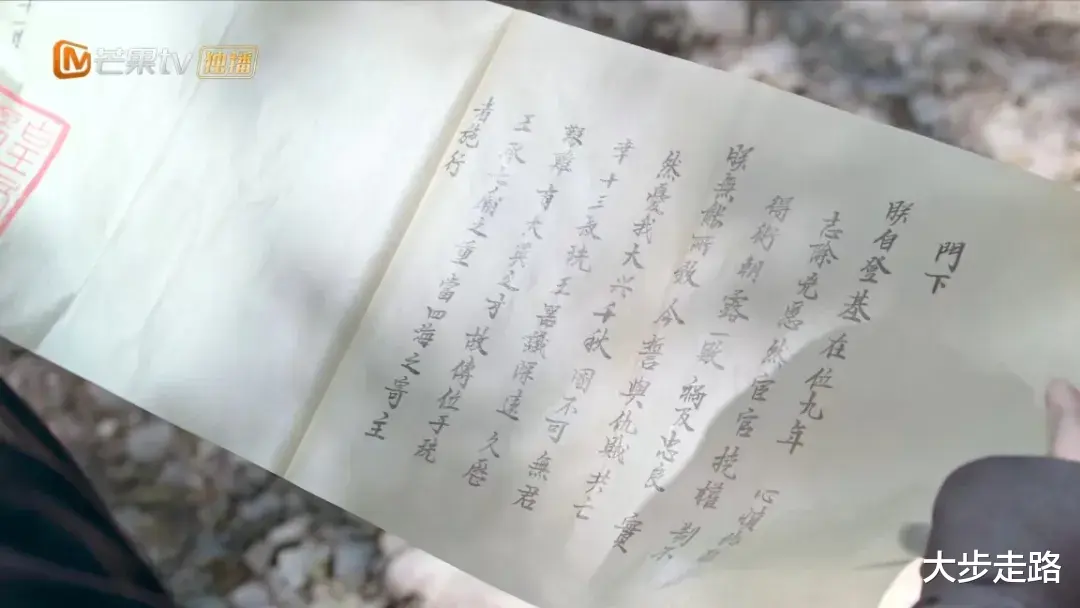 芒果tv 独播
門下
朕自登基在位九年
志除兇恩然宦官挠權制不
得術朝露一毆禍及忠良實
朕無能所致今誓與仇賊共亡
然憂我大兴千秋國不可無君
幸十三叔珖王器議深遠久歷
艱難有大英之才故傳位于珖
王承之廟之重當四海之寄主
者施行
大步走路